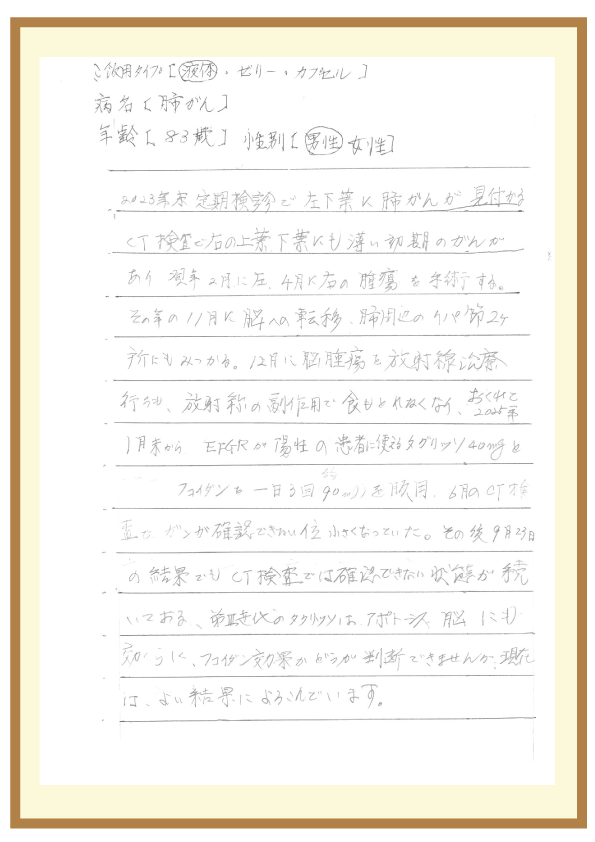 ご飲用タイプ[液体・ゼリー・カプセル]
病名[肺がん]
年齢[83歳] 性別[男性 女性]
2023年末 定期検診で 左下葉に肺がんが見付かる
CT検査で右の上葉下葉にも薄い初期のがんが
あり 翌年2月に左、4月に右の腫瘍を手術する。
その年の11月に脳への転移、肺周辺のリンパ節2ヶ
所にもみつかる。12月に脳腫瘍を放射線治療
行うも、放射線の副作用で食もとれなくなり、おくれて
2025年
1月末から EFGRが陽性の患者に使えるタグリッソ40mgと
フコイダンを一日3回 約90mlを服用、6月のCT検
査で ガンが確認できない位小さくなっていた。その後9月23日
の結果でもCT検査では確認できない状態が続
いており、第三世代のタグリッソは、アポトーシス、脳にも
効くらしく、フコイダン効果かどうか判断できませんが、現在
は、よい結果によろこんでいます。